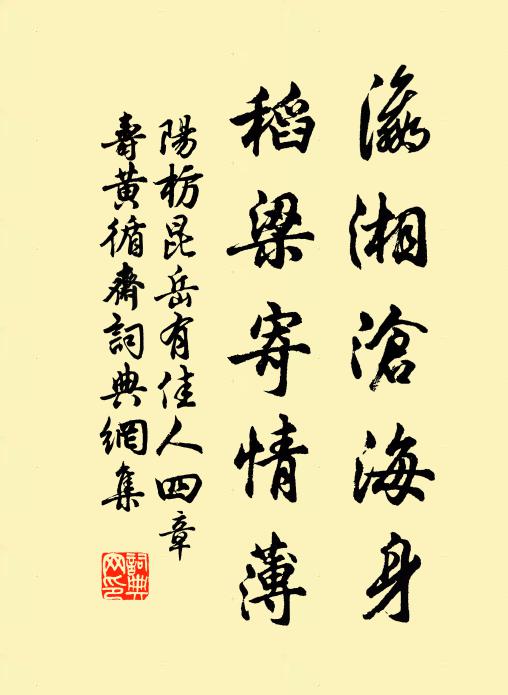 瀛湘滄海身
稻梁寄情薄
陽枋昆岳有佳人四章
壽黃循齋詞典網集
詞典
网印